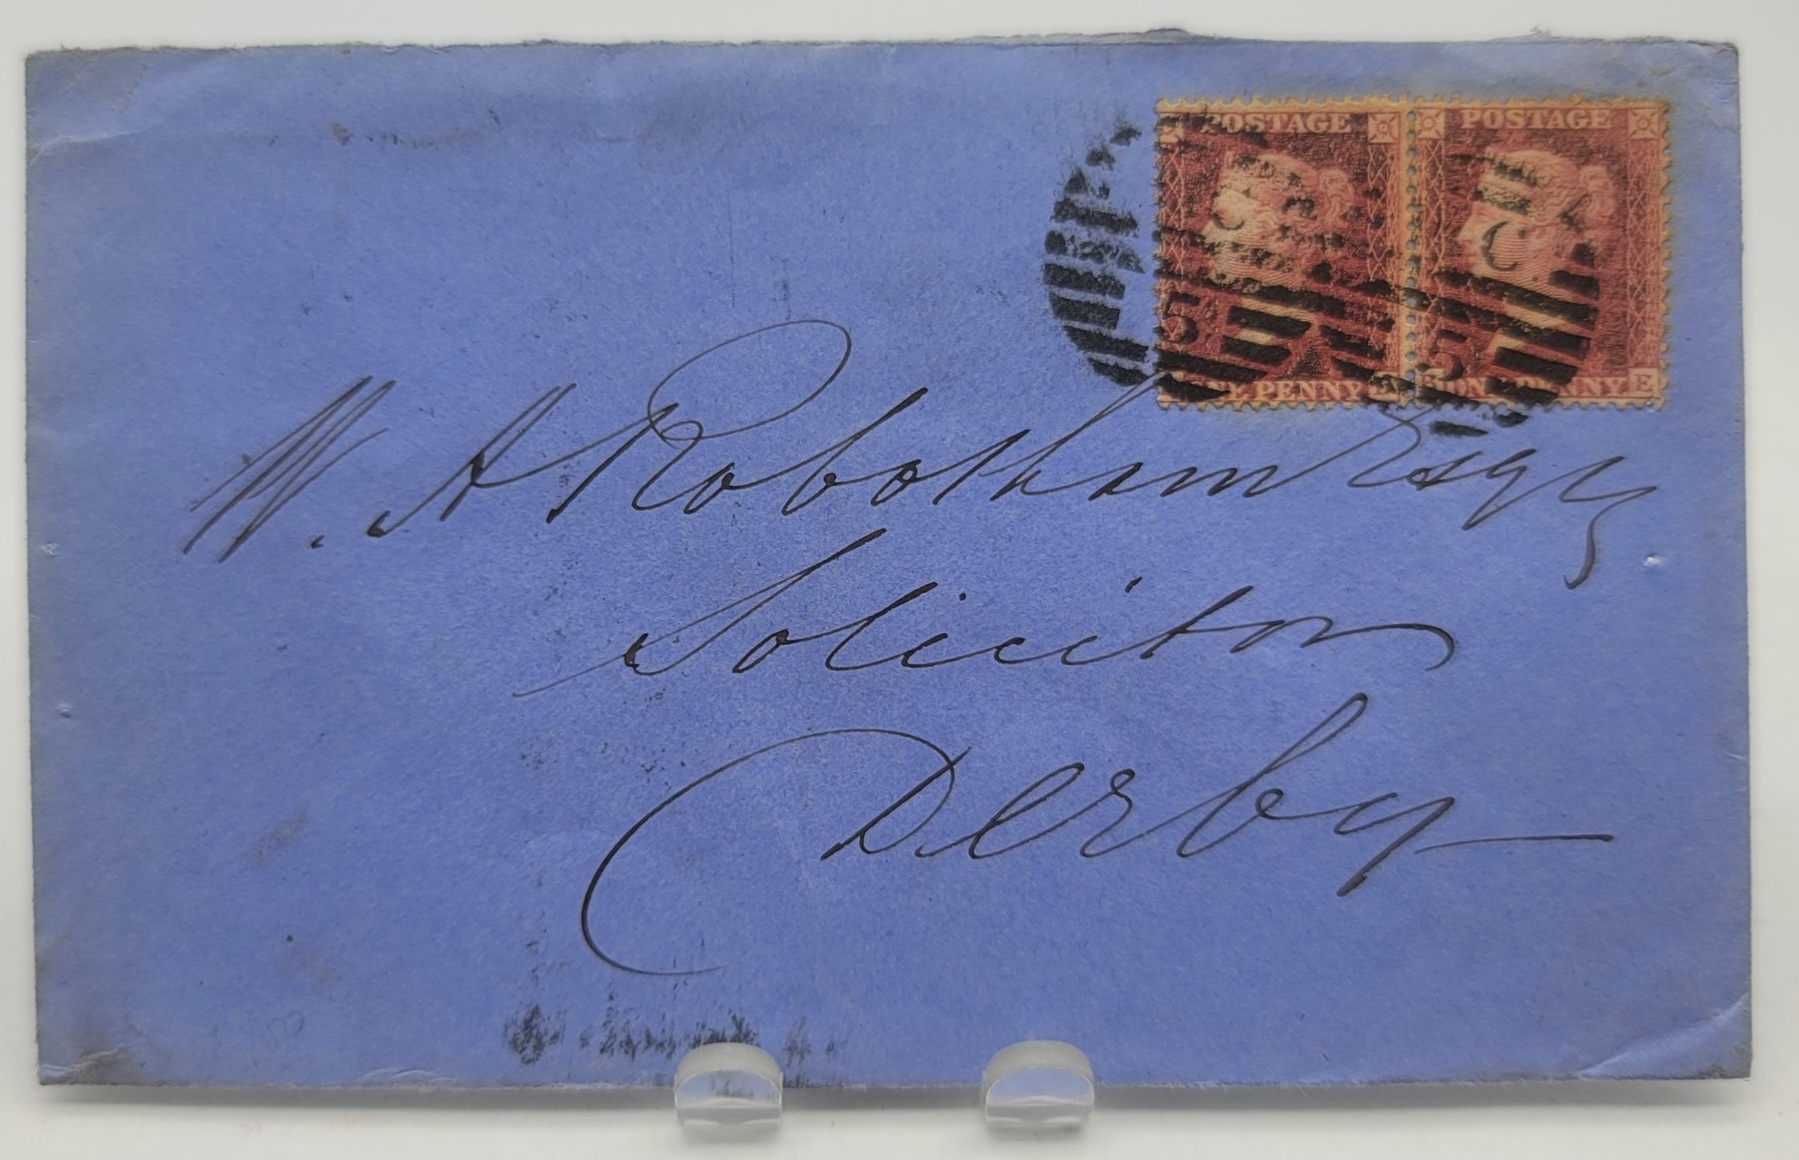 POSTAGE POSTAGE
ONE PENNY ONE PENNY E
W. A Robotham Esqr
Solicitor
Derby